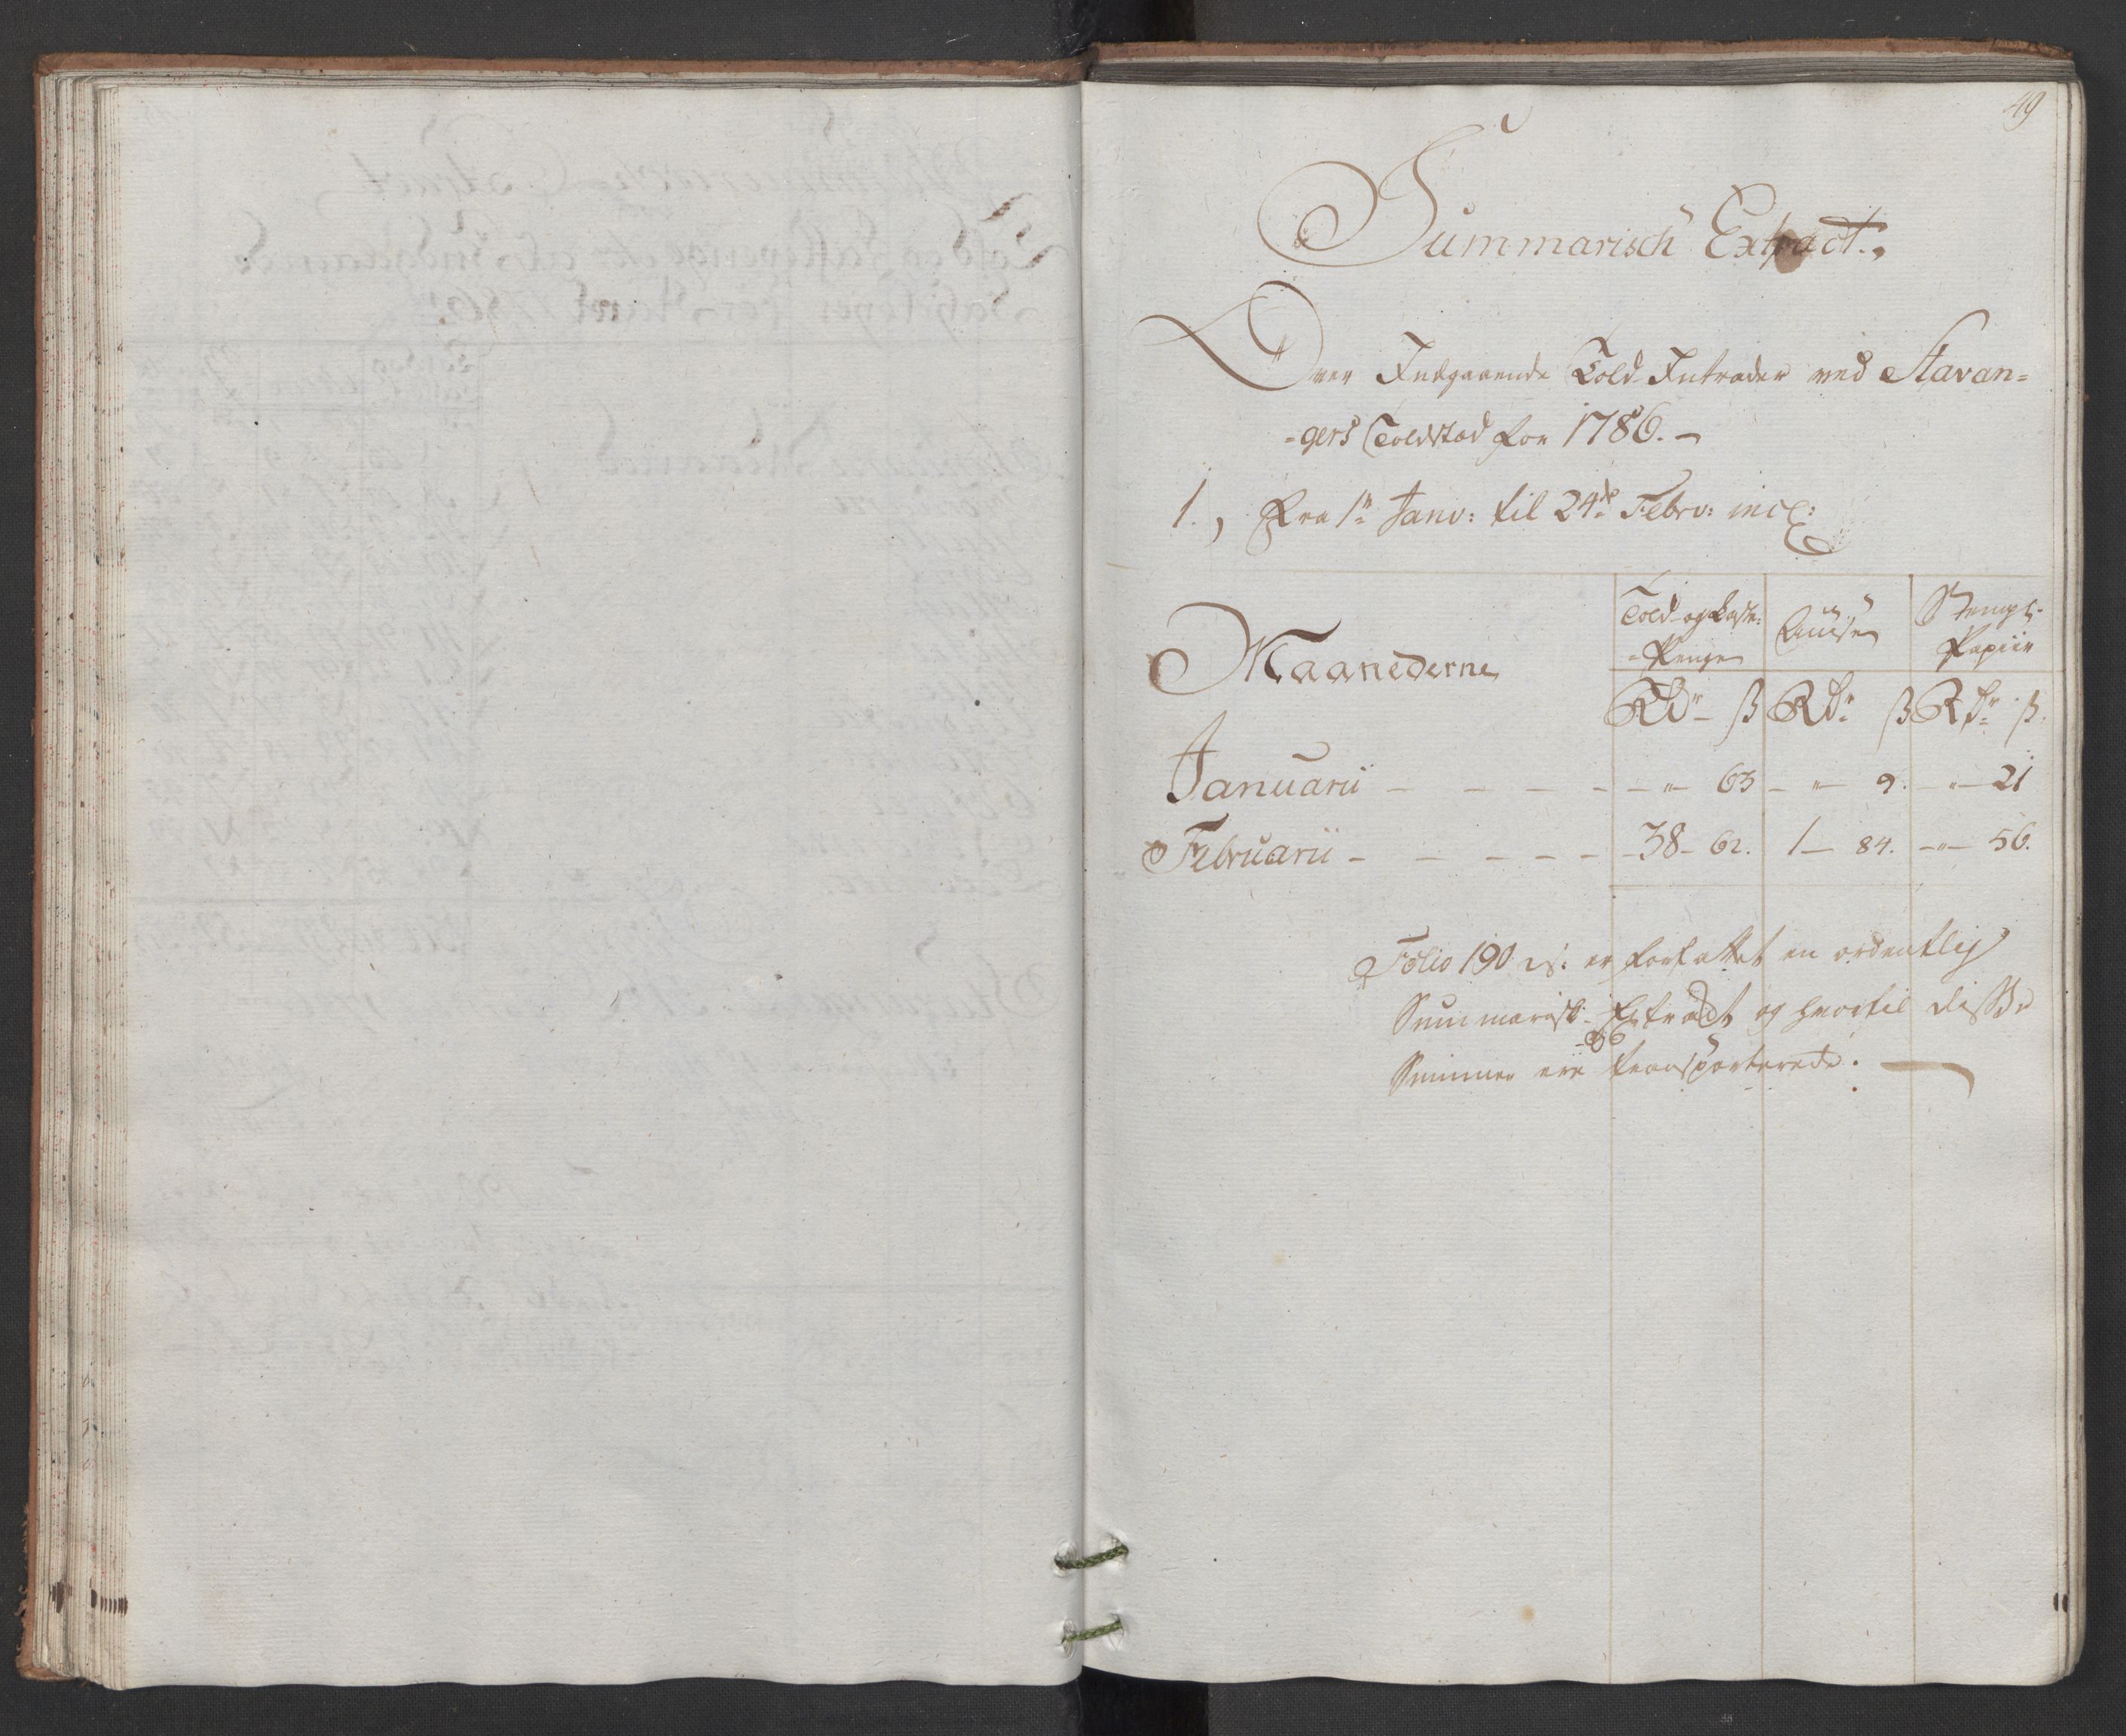 49
Summarisch Extract.,
Over Indgaaende Told-Intrader ved Stavan=
=gers Toldsted for 1786. –
1., Fra 1te Janv: til 24de Febrv: incl:
Maanederne
Told- og Laste=
=Penge
Accise
Stempl:
Papiir
Rdr ß Rdr ß Rdr ß.
Januarii – – – – – „ – 63 – „ – 9. – „ – 21
Februarii – – – – – – 38 – 62. 1 – 84. – „ – 56.
Folio 190 er forfattet en ordentlig
Summarisk Extract og hvortil disse
Summer ere transporterede.